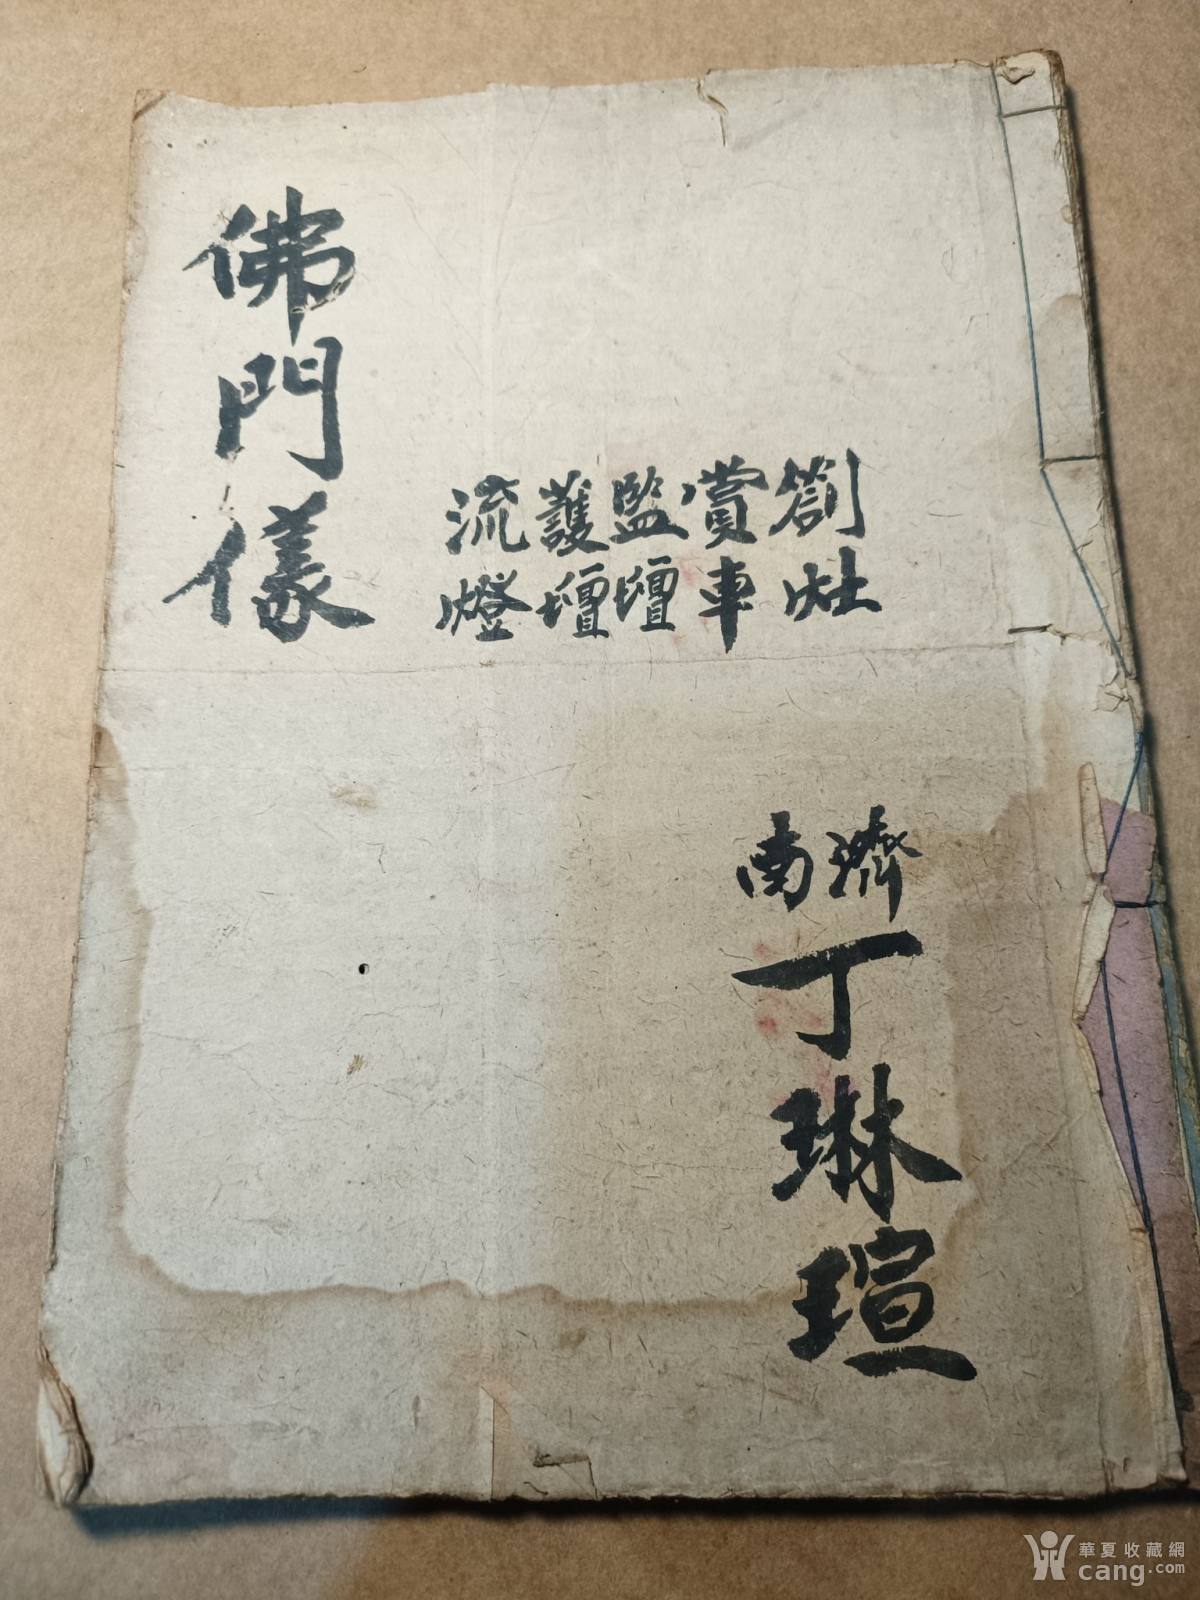 劄灶
賞車
監壇
護壇
流燈
佛門儀
濟南
丁琳瑄
華夏收藏網
cang.com